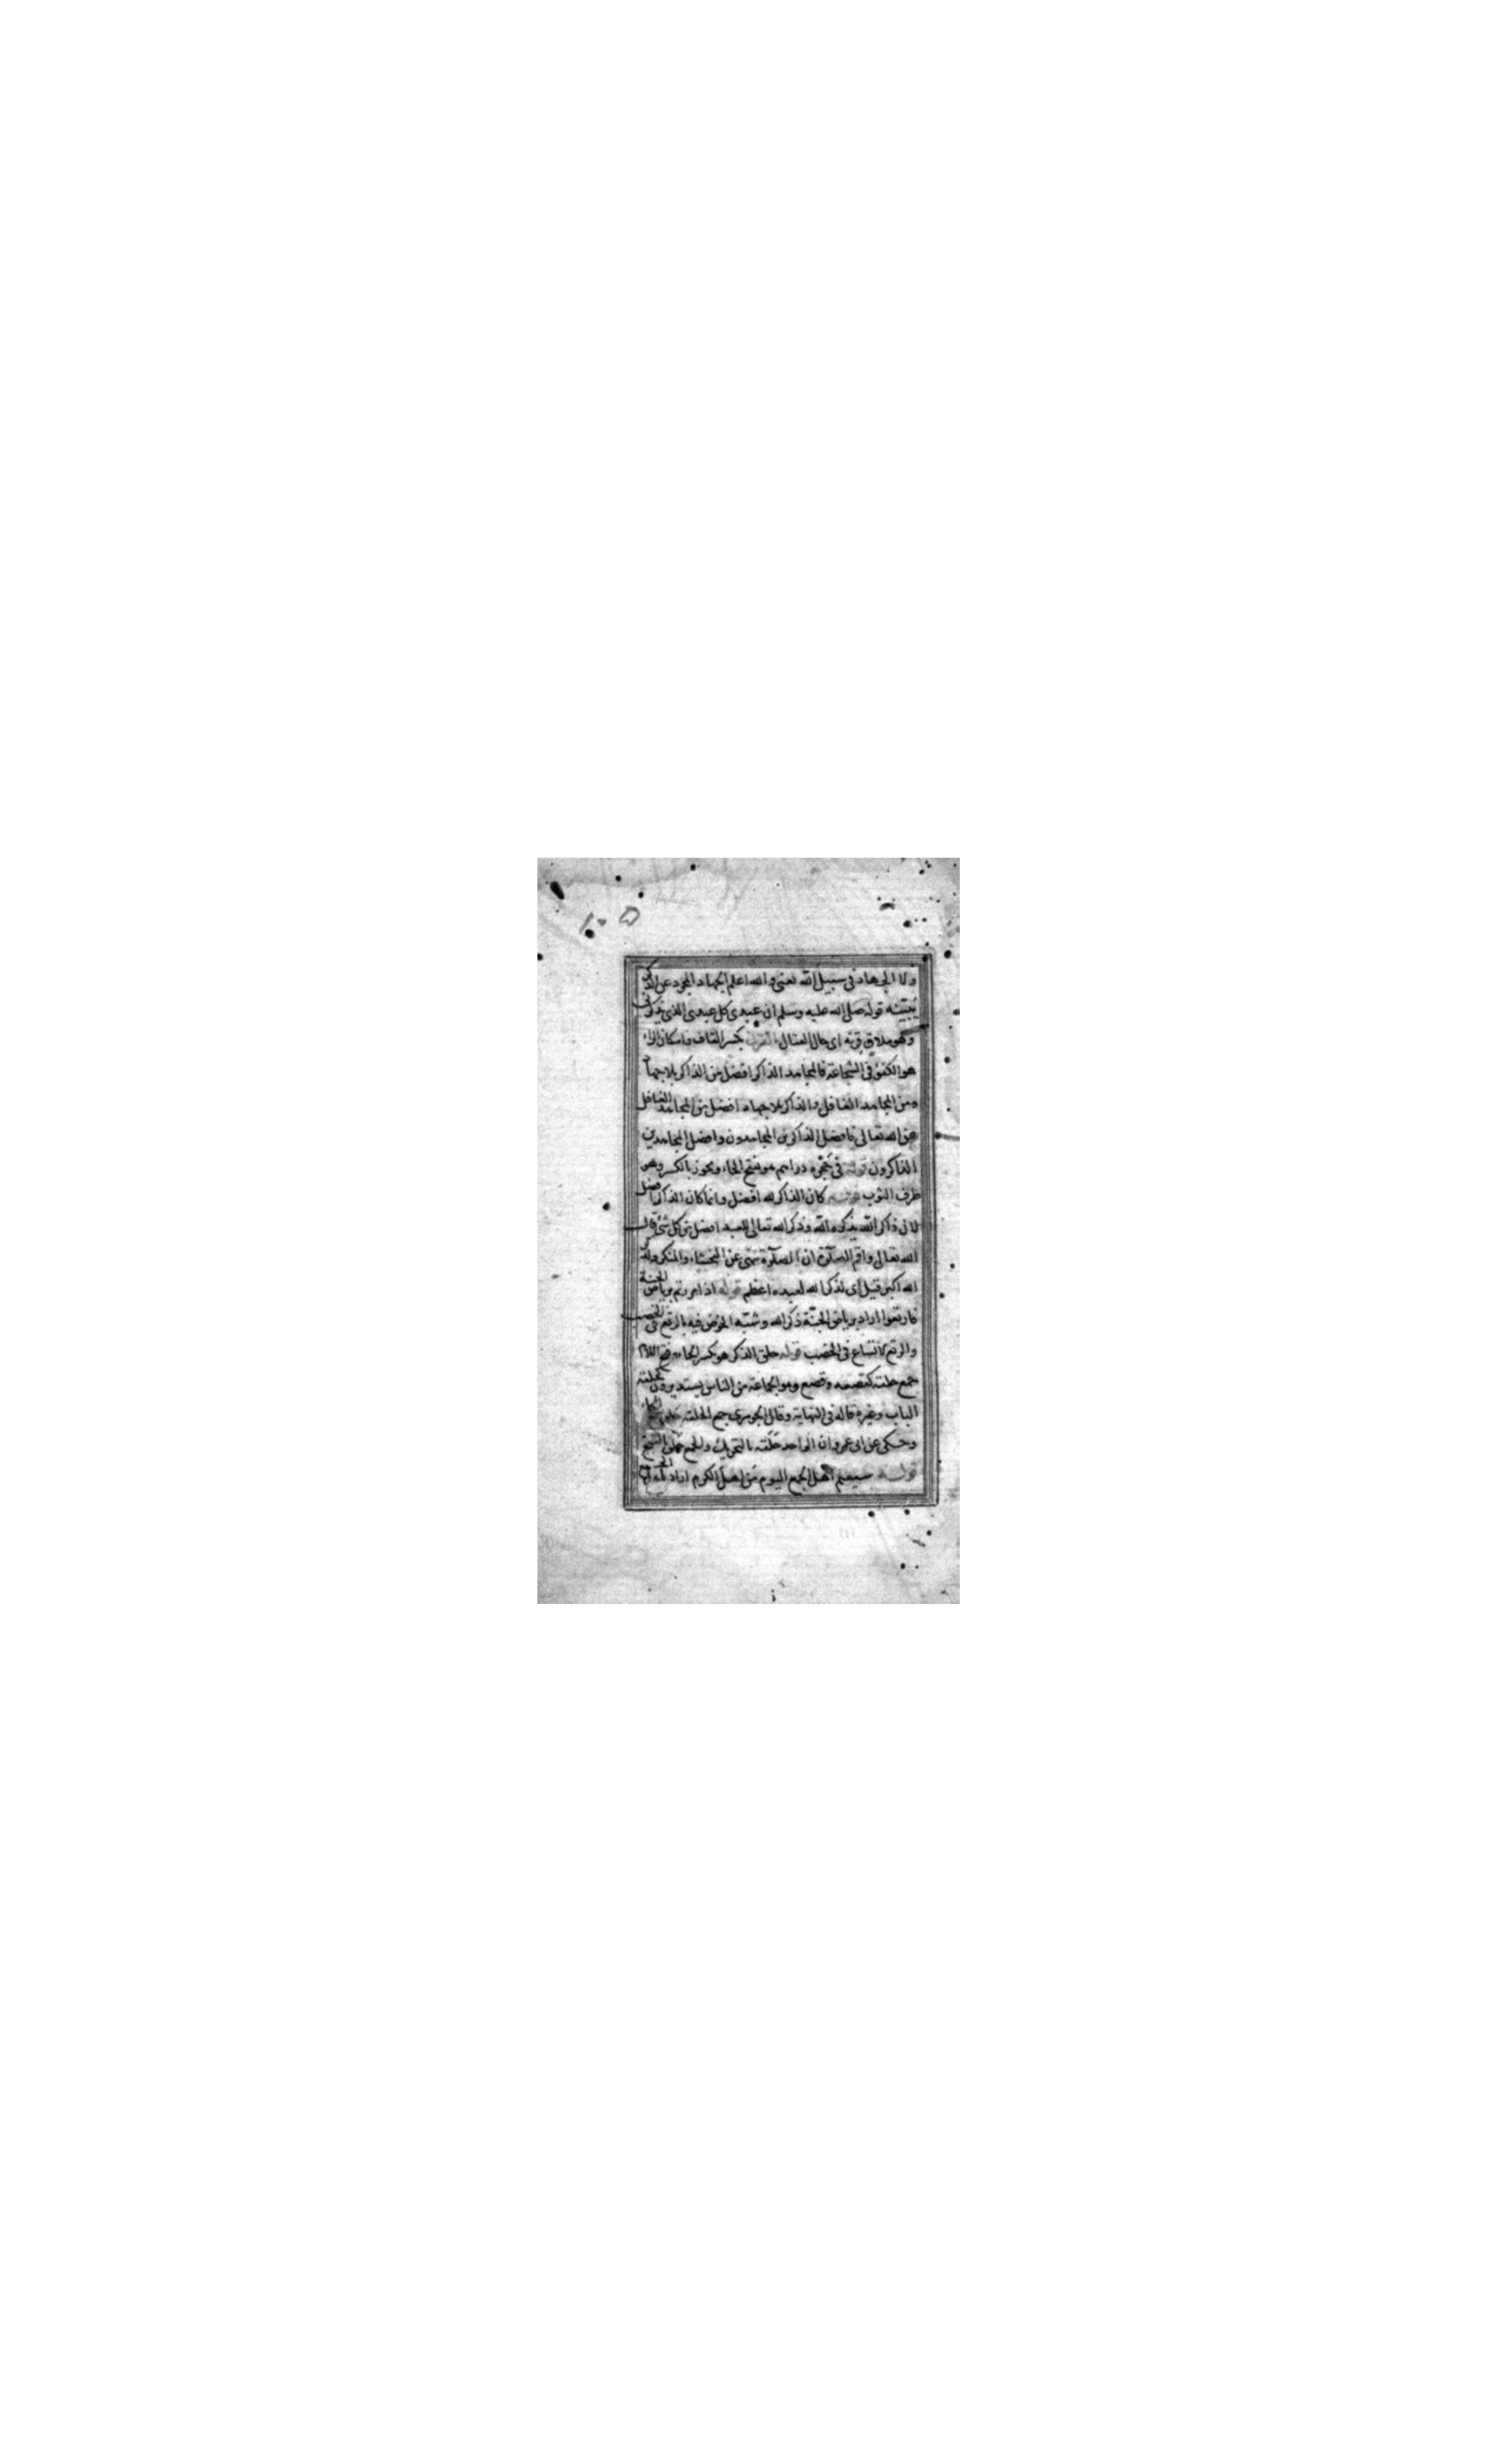 ولا الجهاد في سبيل الله يعني والله اعلم الجهاد المجرد عن الذكر
يبيّنه قوله صلى الله عليه وسلم ان عبدي كل عبدي الذي يذكرني
وهو ملاق قرنه اى حال القتال القرن بكسر القاف واسكان الراء
هو الكفؤ في الشجاعة فالمجاهد الذاكر افضل من الذاكر بلا جهاد
ومن المجاهد الغافل والذاكر بلا جهاد افضل من المجاهد الغافل
عن الله تعالى فافضل الذاكرين المجاهدون وافضل المجاهدين
الذاكرون قوله في حجره دراهم هو بفتح الحاء ويجوز بالكسر وهو
طرف الثوب قوله كان الذاكر لله افضل وانما كان الذاكر افضل
لان ذاكر الله يذكره الله وذكر الله تعالى للعبد افضل من كل شئ قال
الله تعالى واقم الصلوة ان الصلوة تنهى عن الفحشاء والمنكر ولذكر
الله اكبر قيل اى لذكر الله لعبده اعظم قوله اذا مررتم برياض الجنة
فارتعوا اراد برياض الجنة ذكر الله وشبّه الخوض فيه بالرتع في الخصب
والرتع الاتساع في الخصب قوله حلق الذكر هو بكسر الحاء وفتح اللام
جمع حلقة كقصعة وقصع وهو الجماعة من الناس يستديرون كحلقة
الباب وغيره قاله في النهاية وقال الجوهري جمع الحلقة حلق بفتح الحاء
وحكى عن ابي عمرو ان الواحد حلقة بالتحريك والجمع حلق بالفتح
قوله سيعلم اهل الجمع اليوم من اهل الكرم اراد